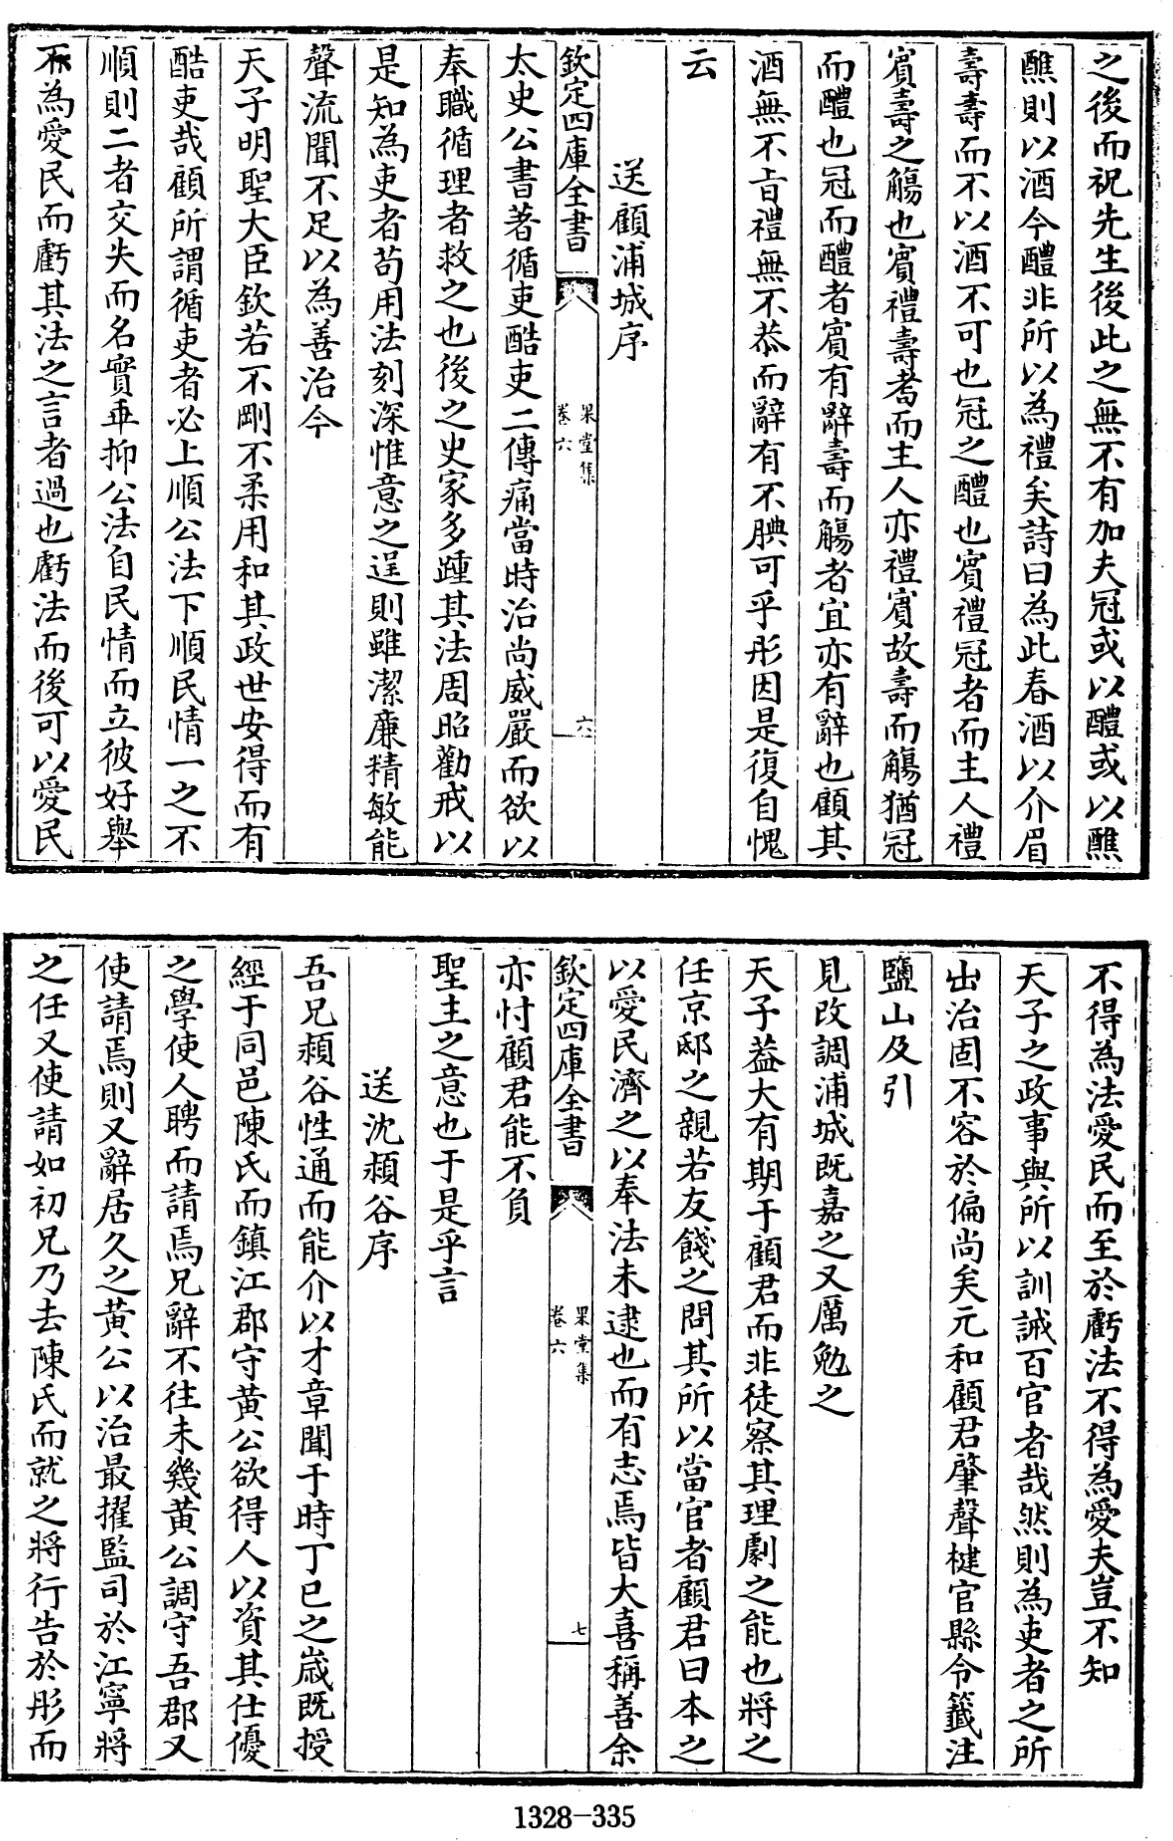 之後而祝先生後此之無不有加夫冠或以醴或以醮
醮則以酒今醴非所以為禮矣詩曰為此春酒以介眉
壽壽而不以酒不可也冠之醴也賓禮冠者而主人禮
賓壽之觴也賓禮壽耈而主人亦禮賓故壽而觴猶冠
而醴也冠而醴者賓有辭壽而觴者宜亦有辭也顧其
酒無不旨禮無不恭而辭有不腆可乎彤因是復自愧
云
送顧浦城序
欽定四庫全書
果堂集
卷六
六
太史公書著循吏酷吏二傳痛當時治尚威嚴而欲以
奉職循理者救之也後之史家多踵其法周昭勸戒以
是知為吏者苟用法刻深惟意之逞則雖潔廉精敏能
聲流聞不足以為善治今
天子明聖大臣欽若不剛不柔用和其政世安得而有
酷吏哉顧所謂循吏者必上順公法下順民情一之不
順則二者交失而名實乖抑公法自民情而立彼好舉
不為愛民而虧其法之言者過也虧法而後可以愛民
不得為法愛民而至於虧法不得為愛夫豈不知
天子之政事與所以訓誡百官者哉然則為吏者之所
出治固不容於偏尚矣元和顧君肇聲楗官縣令籤注
鹽山及引
見改調浦城既嘉之又厲勉之
天子葢大有期于顧君而非徒察其理劇之能也將之
任京邸之親若友餞之問其所以當官者顧君曰本之
以愛民濟之以奉法未逮也而有志焉皆大喜稱善余
欽定四庫全書
果堂集
卷六
七
亦忖顧君能不負
聖主之意也于是乎言
送沈頴谷序
吾兄頴谷性通而能介以才章聞于時丁巳之嵗既授
經于同邑陳氏而鎮江郡守黄公欲得人以資其仕優
之學使人聘而請焉兄辭不往未幾黄公調守吾郡又
使請焉則又辭居久之黄公以治最擢監司於江寧將
之任又使請如初兄乃去陳氏而就之將行告於彤而
1328-335